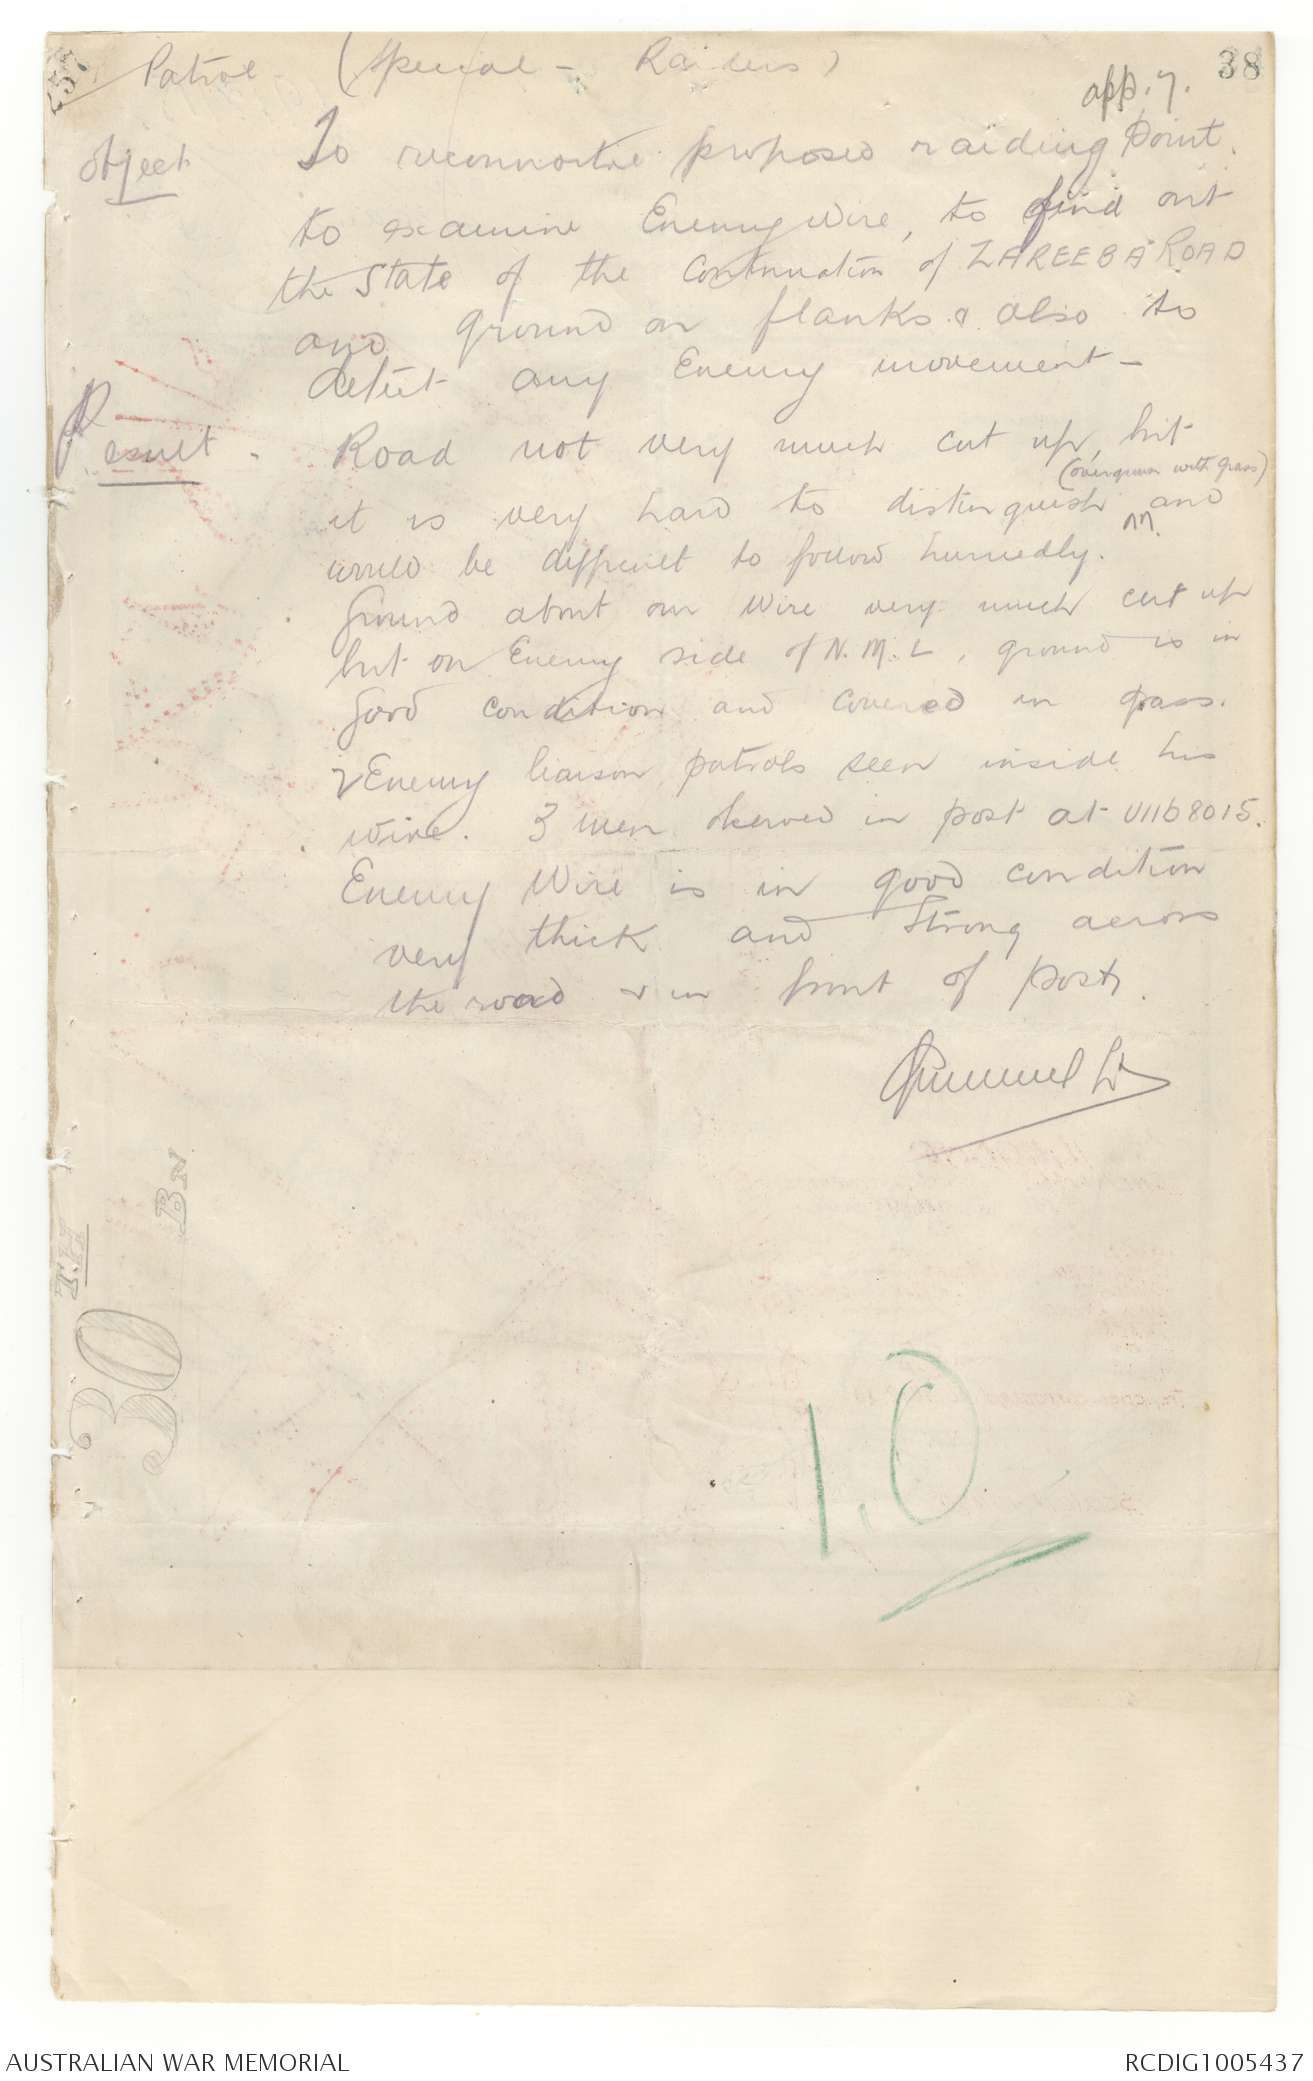 Patrol (Special - Raiders)
38
app. 7.
Object To reconnoitre proposed raiding point.
to examine Enemy Wire, to find out
the state of the continuation of ZAREEBA ROAD
and ground on flanks & also to
detect any Enemy movement -
Result - Road not very much cut up, but
(overgrown with grass)
it is very hard to distinguish and
would be difficult to follow hurriedly.
Ground about our wire very much cut up
but on Enemy side of N.M.L, ground is in
good condition and covered in grass.
2 Enemy liaison patrols seen inside his
wire. 3 men observed in post at U11b8015.
Enemy Wire is in good condition
very thick and strong across
the road & in front of post.
Lt
30 TH BN
I.O
AUSTRALIAN WAR MEMORIAL
RCDIG1005437